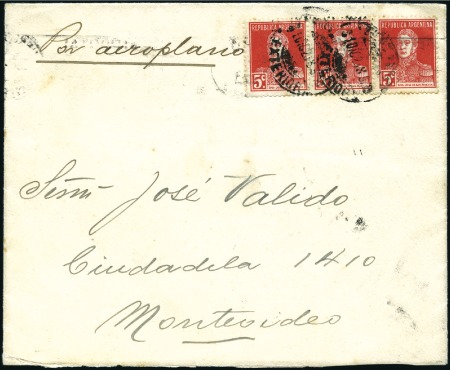 Por aeroplano
REPUBLICA ARGENTINA REPUBLICA ARGENTINA REPUBLICA ARGENTINA
5c 5c 5c
Señor José Valido
Ciudadela 1410
Montevideo